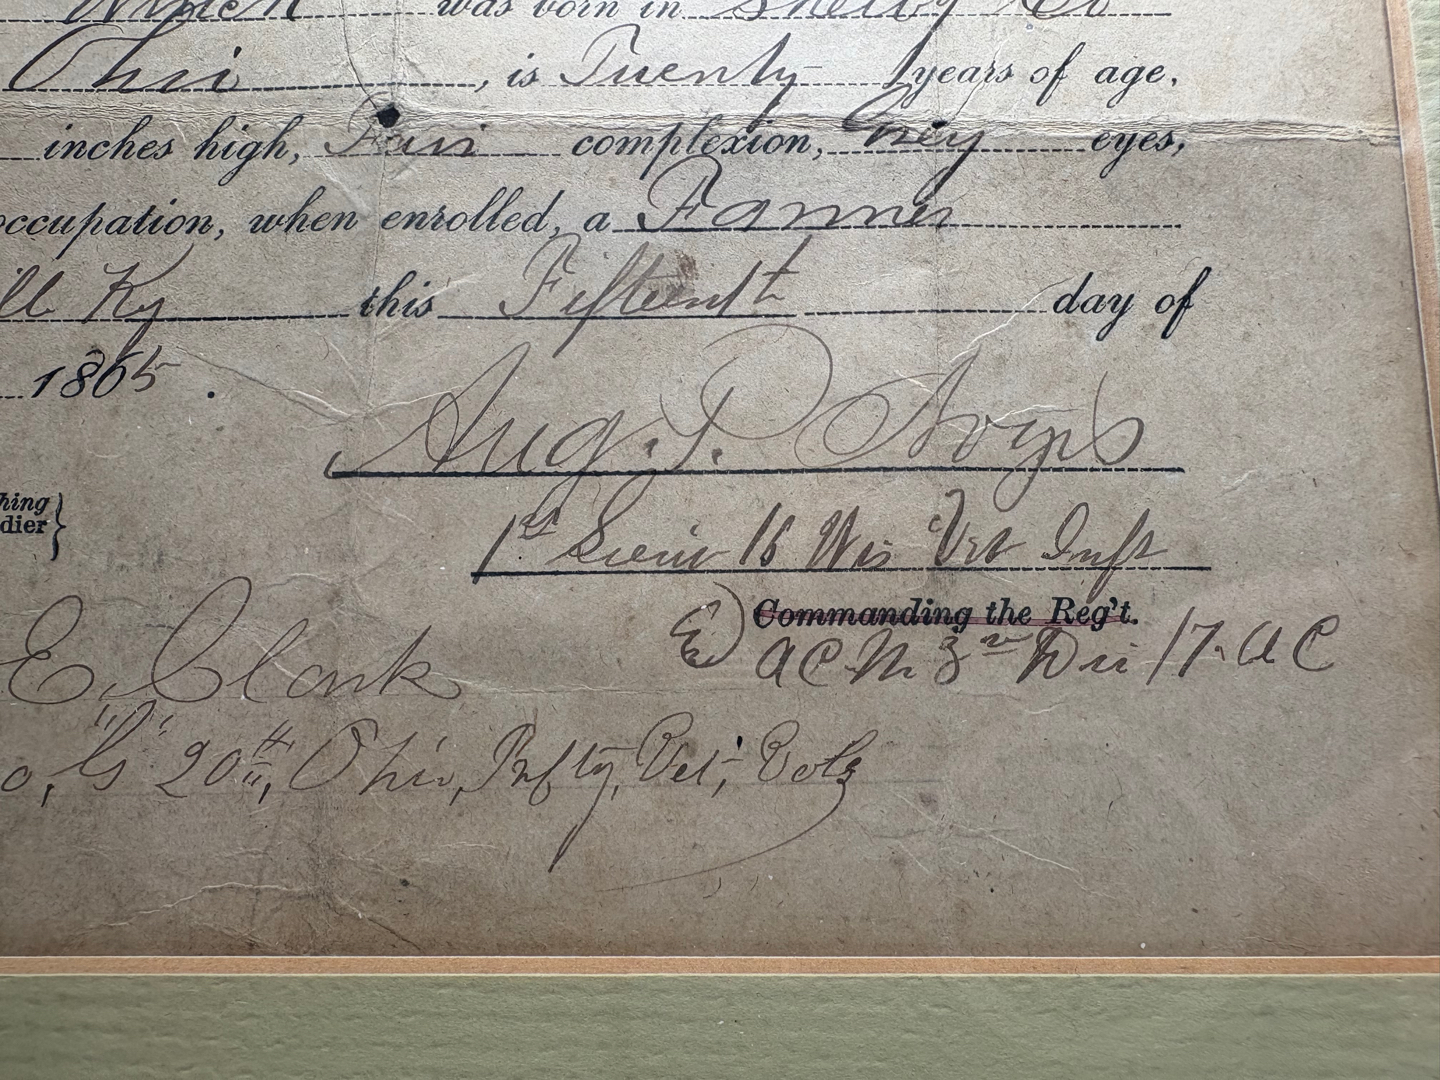 was born in Shelby Co
Ohio, is Twenty years of age,
inches high, Fair complexion, Grey eyes,
occupation, when enrolled, a Farmer
ll Ky this Fifteenth day of
1865.
Aug. T.
hing
dier}
1st Lieut 16 Wis Vet Inft
Commanding the Reg't.
E. Clark
A C M 3rd Div 17. A C
o, G 20th, Ohio, Infty, Vet, Vols